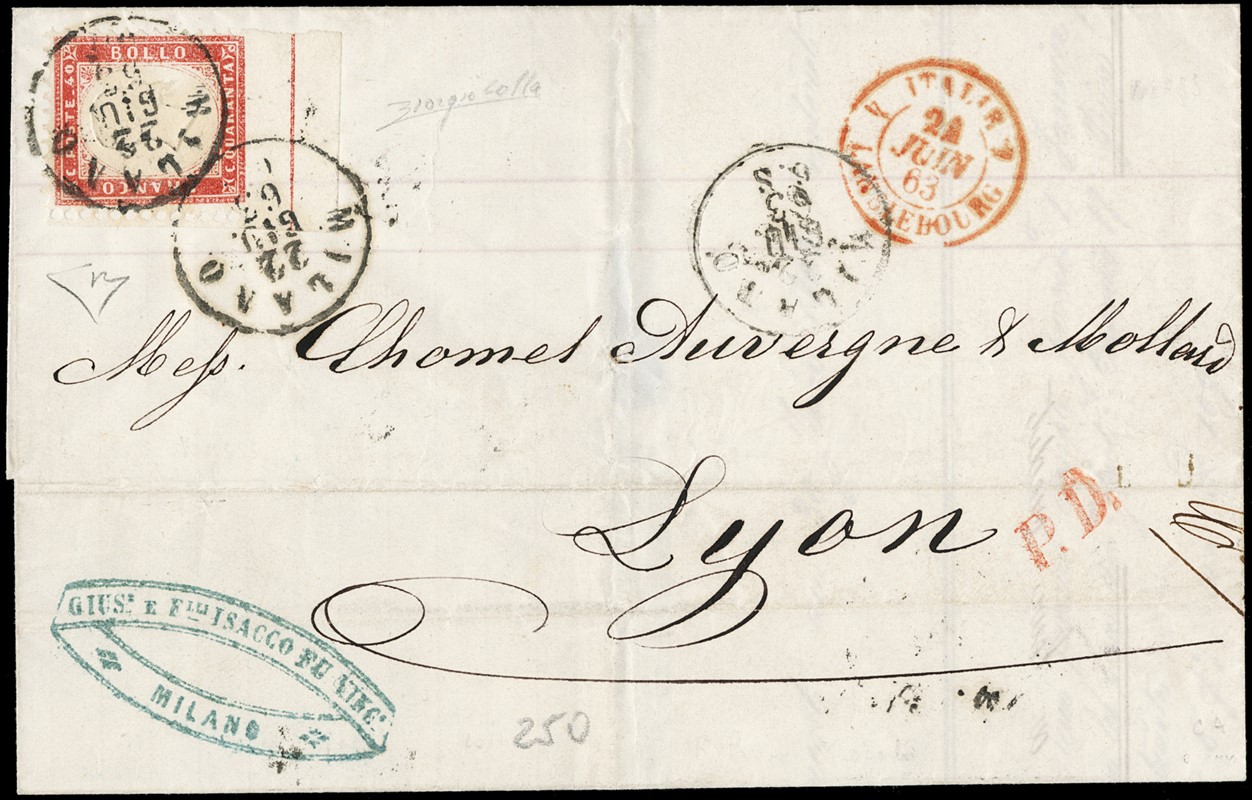 BOLLO
C.QUARANTA
FRANCO
C.POSTE·40
MILANO
22
GIU
63
MILANO
22
GIU
63
Giorgio Colla
MILANO
GIU
63
ITALIE
24
JUIN
63
LANSLEBOURG
Mess. Chomel Auvergne & Mollard
Lyon
P.D.
GIUS.E E F.LLI ISACCO FU VINC.
MILANO
250